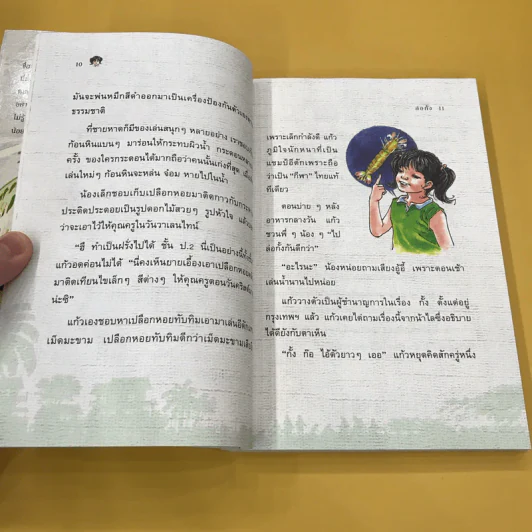 10
มันจะพ่นหมึกสีดำออกมาเป็นเครื่องป้องกันตัวเอง
ธรรมชาติ
ที่ชายหาดก็มีของเล่นสนุกๆ หลายอย่าง
ก้อนหินแบนๆ มาร่อนให้กระทบผิวน้ำ
ครั้ง ของใครกระดอนได้มากถือว่าคนนั้นเก่งที่สุด
เล่นใหม่ๆ ก้อนหินจะหล่น จ๋อม หายไปในน้ำ
น้องเล็กชอบเก็บเปลือกหอยมาติดกาวกับ
ประดิดประดอยเป็นรูปดอกไม้สวยๆ รูปหัวใจ
ว่าจะเอาไว้ให้คุณครูในวันวาเลนไทน์
“ฮึ ทำเป็นฝรั่งไปได้ ชั้น ป.2 นี่เป็นอย่างนี้
แก้วอดค่อนไม่ได้ “นี่คงเห็นยายเอื้องเอาเปลือกหอย
มาติดเทียนไขเล็กๆ สีต่างๆ ให้คุณครูตอนวัน
น่ะซิ”
แก้วเองชอบหาเปลือกหอยทับทิมเอามาเล่น
เม็ดมะขาม เปลือกหอยทับทิมดีกว่าเม็ดมะขาม
ล่อกั้ง 11
เพราะเล็กกำลังดี แก้ว
ภูมิใจนักหนาที่เป็น
แชมป์อีตักเพราะถือ
ว่าเป็น “กีฬา” ไทยแท้
ทีเดียว
ตอนบ่าย ๆ หลัง
อาหารกลางวัน แก้ว
ชวนพี่ ๆ น้อง ๆ “ไป
ล่อกั้งกันดีกว่า”
“อะไรนะ” น้องหน่อยถามเสียงอู้อี้ เพราะตอนเช้า
เล่นน้ำนานไปหน่อย
แก้ววางตัวเป็นผู้ชำนาญการในเรื่อง กั้ง ตั้งแต่อยู่
กรุงเทพฯ แล้ว แก้วเคยไต่ถามเรื่องนี้จากน้าไลซึ่งอธิบาย
ได้ดียังกับตาเห็น
“กั้ง ก๊อ ไอ้ตัวยาวๆ เออ” แก้วหยุดคิดสักครู่หนึ่ง